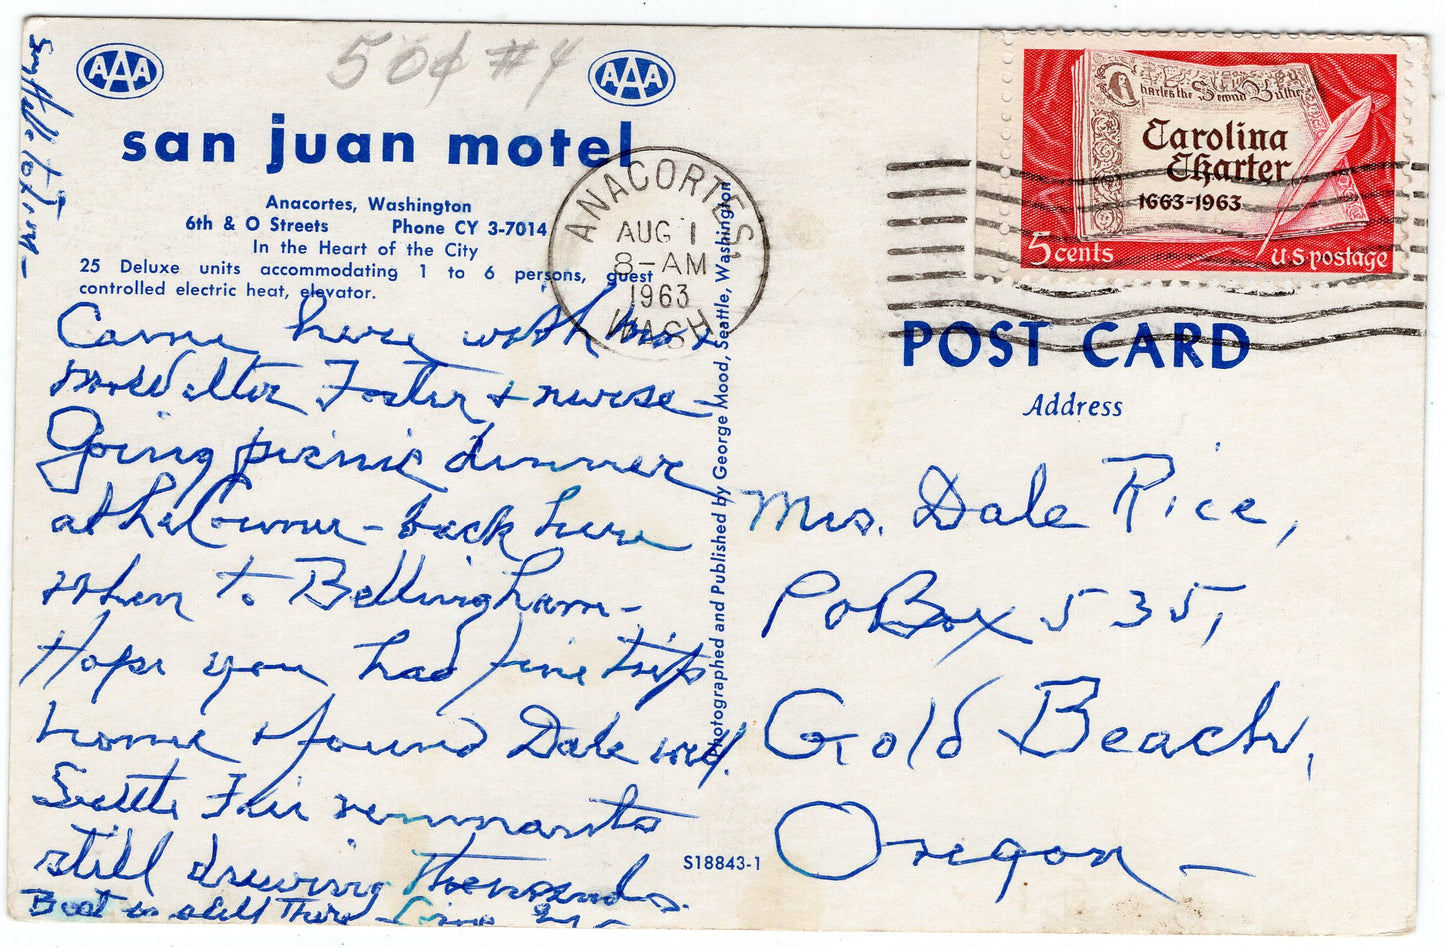 50¢ #4
AAA
AAA
san juan motel
Anacortes, Washington
6th & O Streets Phone CY 3-7014
In the Heart of the City
25 Deluxe units accommodating 1 to 6 persons, guest
controlled electric heat, elevator.
Came here with Mrs
Walter Foster + nurse –
Going picnic dinner
– back here
then to Bellingham –
Hope you had fine trip
home + found Dale well.
Seattle Fair remnants
still drawing thousands.
Boat is still there – Love
Say Hello to
Photographed and Published by George Mood, Seattle, Washington
S18843-1
ANACORTES
AUG 1
8-AM
1963
WASH
Charles the Second
Carolina
Charter
1663-1963
5 cents
U S postage
POST CARD
Address
Mrs. Dale Rice,
PO Box 535,
Gold Beach,
Oregon –